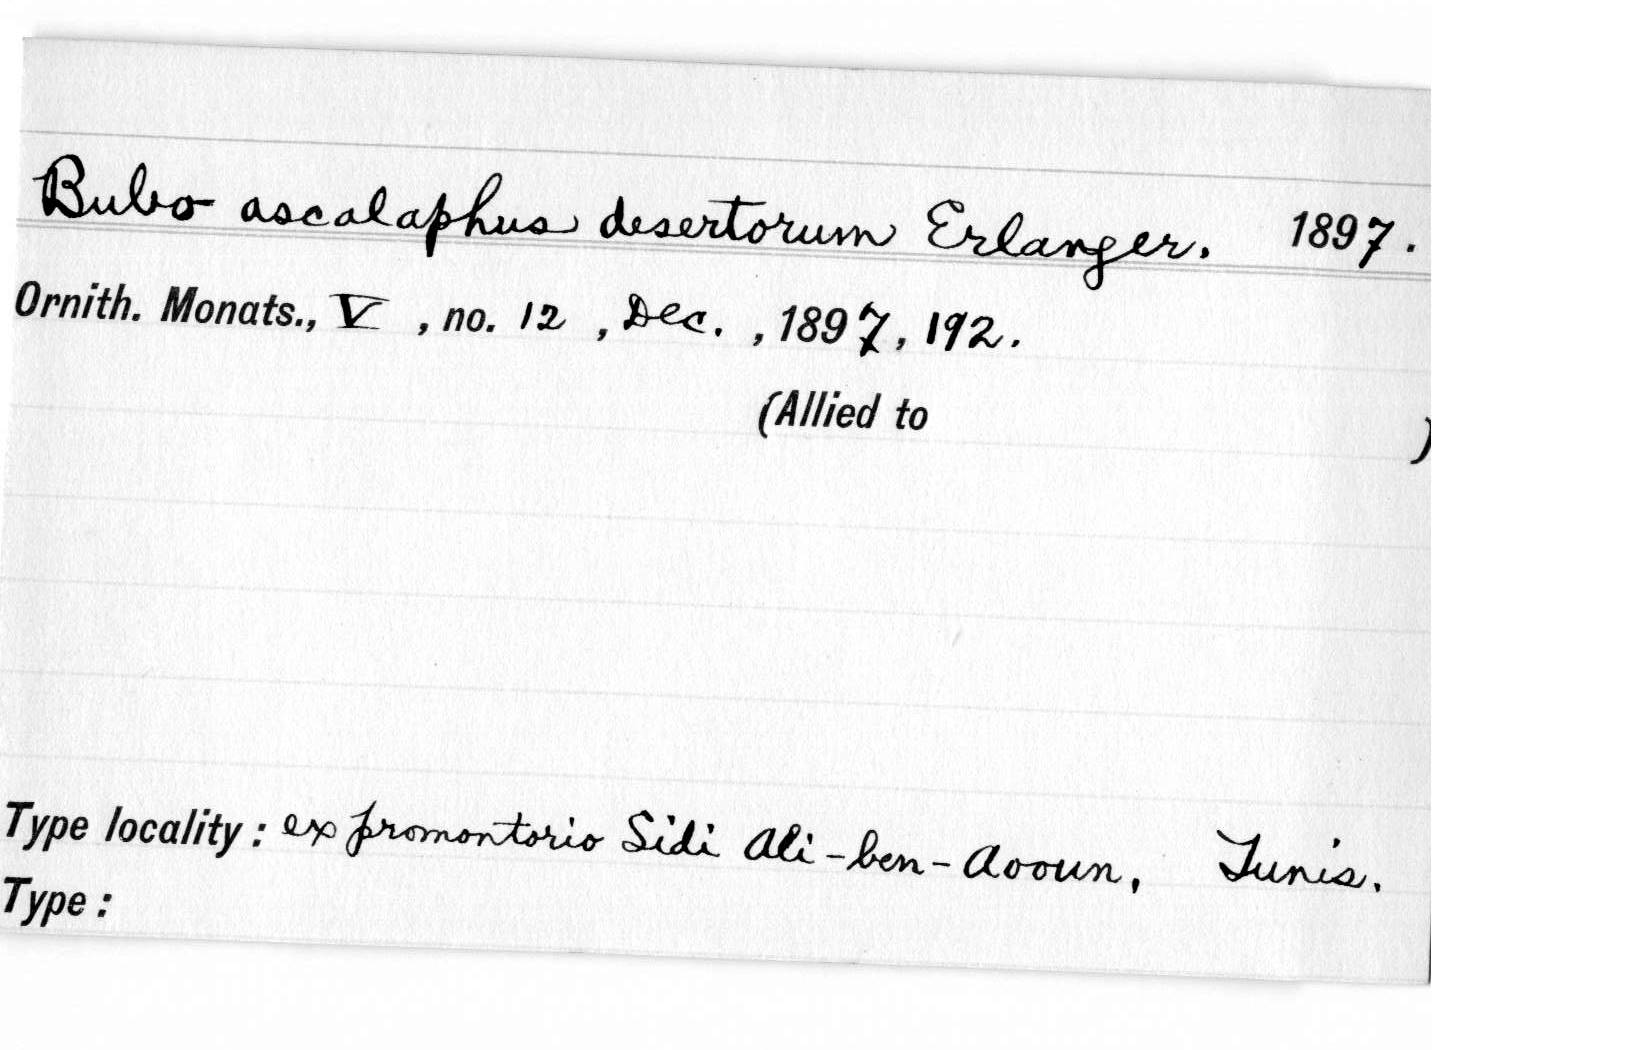 Bubo ascalaphus desertorum Erlanger. 1897.
Ornith. Monats., V , no. 12 , Dec. , 1897, 192.
(Allied to )
Type locality : ex promontorio Sidi Ali-ben-Aooun, Tunis.
Type :